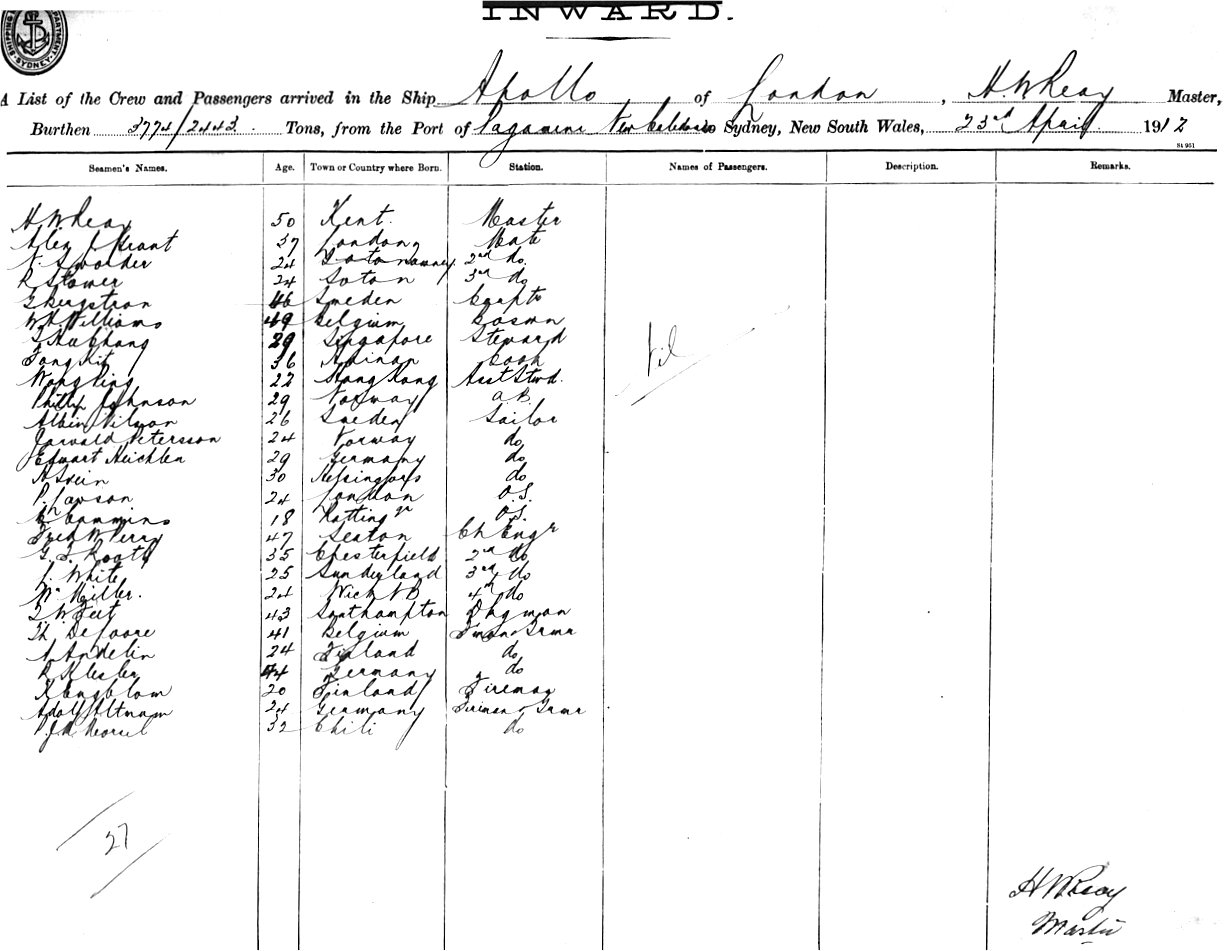 SHIPPING DEPARTMENT. SYDNEY.
INWARD.
A List of the Crew and Passengers arrived in the Ship Apollo of London, H. W Reay Master,
Burthen 3774/2443. Tons, from the Port of New Caledonia to Sydney, New South Wales, 23rd April 1912
St 951
Seamen's Names. Age. Town or Country where Born. Station. Names of Passengers. Description. Remarks.
H W Reay 50 Kent. Master
Alex J Grant 37 London Mate
Sworder 24 2nd do.
R Stower 24 Soton 3rd do
G Bergstron 46 Sweden Carptr
W H Williams 49 Belgium Boswn
29 Singapore Steward
Fong Kit 36 Hainan Cook
Wong Ping 22 Hong Kong Asst Stwd.
Phillip Johnson 29 Norway a.b.
Albin Nilson 26 Sweden Sailor
Petersson 24 Norway do
29 Germany do
30 Helsingfors do
P. Lawson 24 London O.S.
Cummins 18 O.S.
Fred W Perry 47 Seaton Ch Engr
35 Chesterfield 2nd do
J. White 25 Sunderland 3rd do
Wm Miller. 24 Wick NB 4th do
43 Southampton
Th. Defoore 41 Belgium
A Andelin 24 Finland do
R Klesler 44 Germany do
K Engblom 20 Finland Fireman
Adolf Altmann 24 Germany Fireman & Trmr
32 Chili do
Nil
27
H W Reay
Master